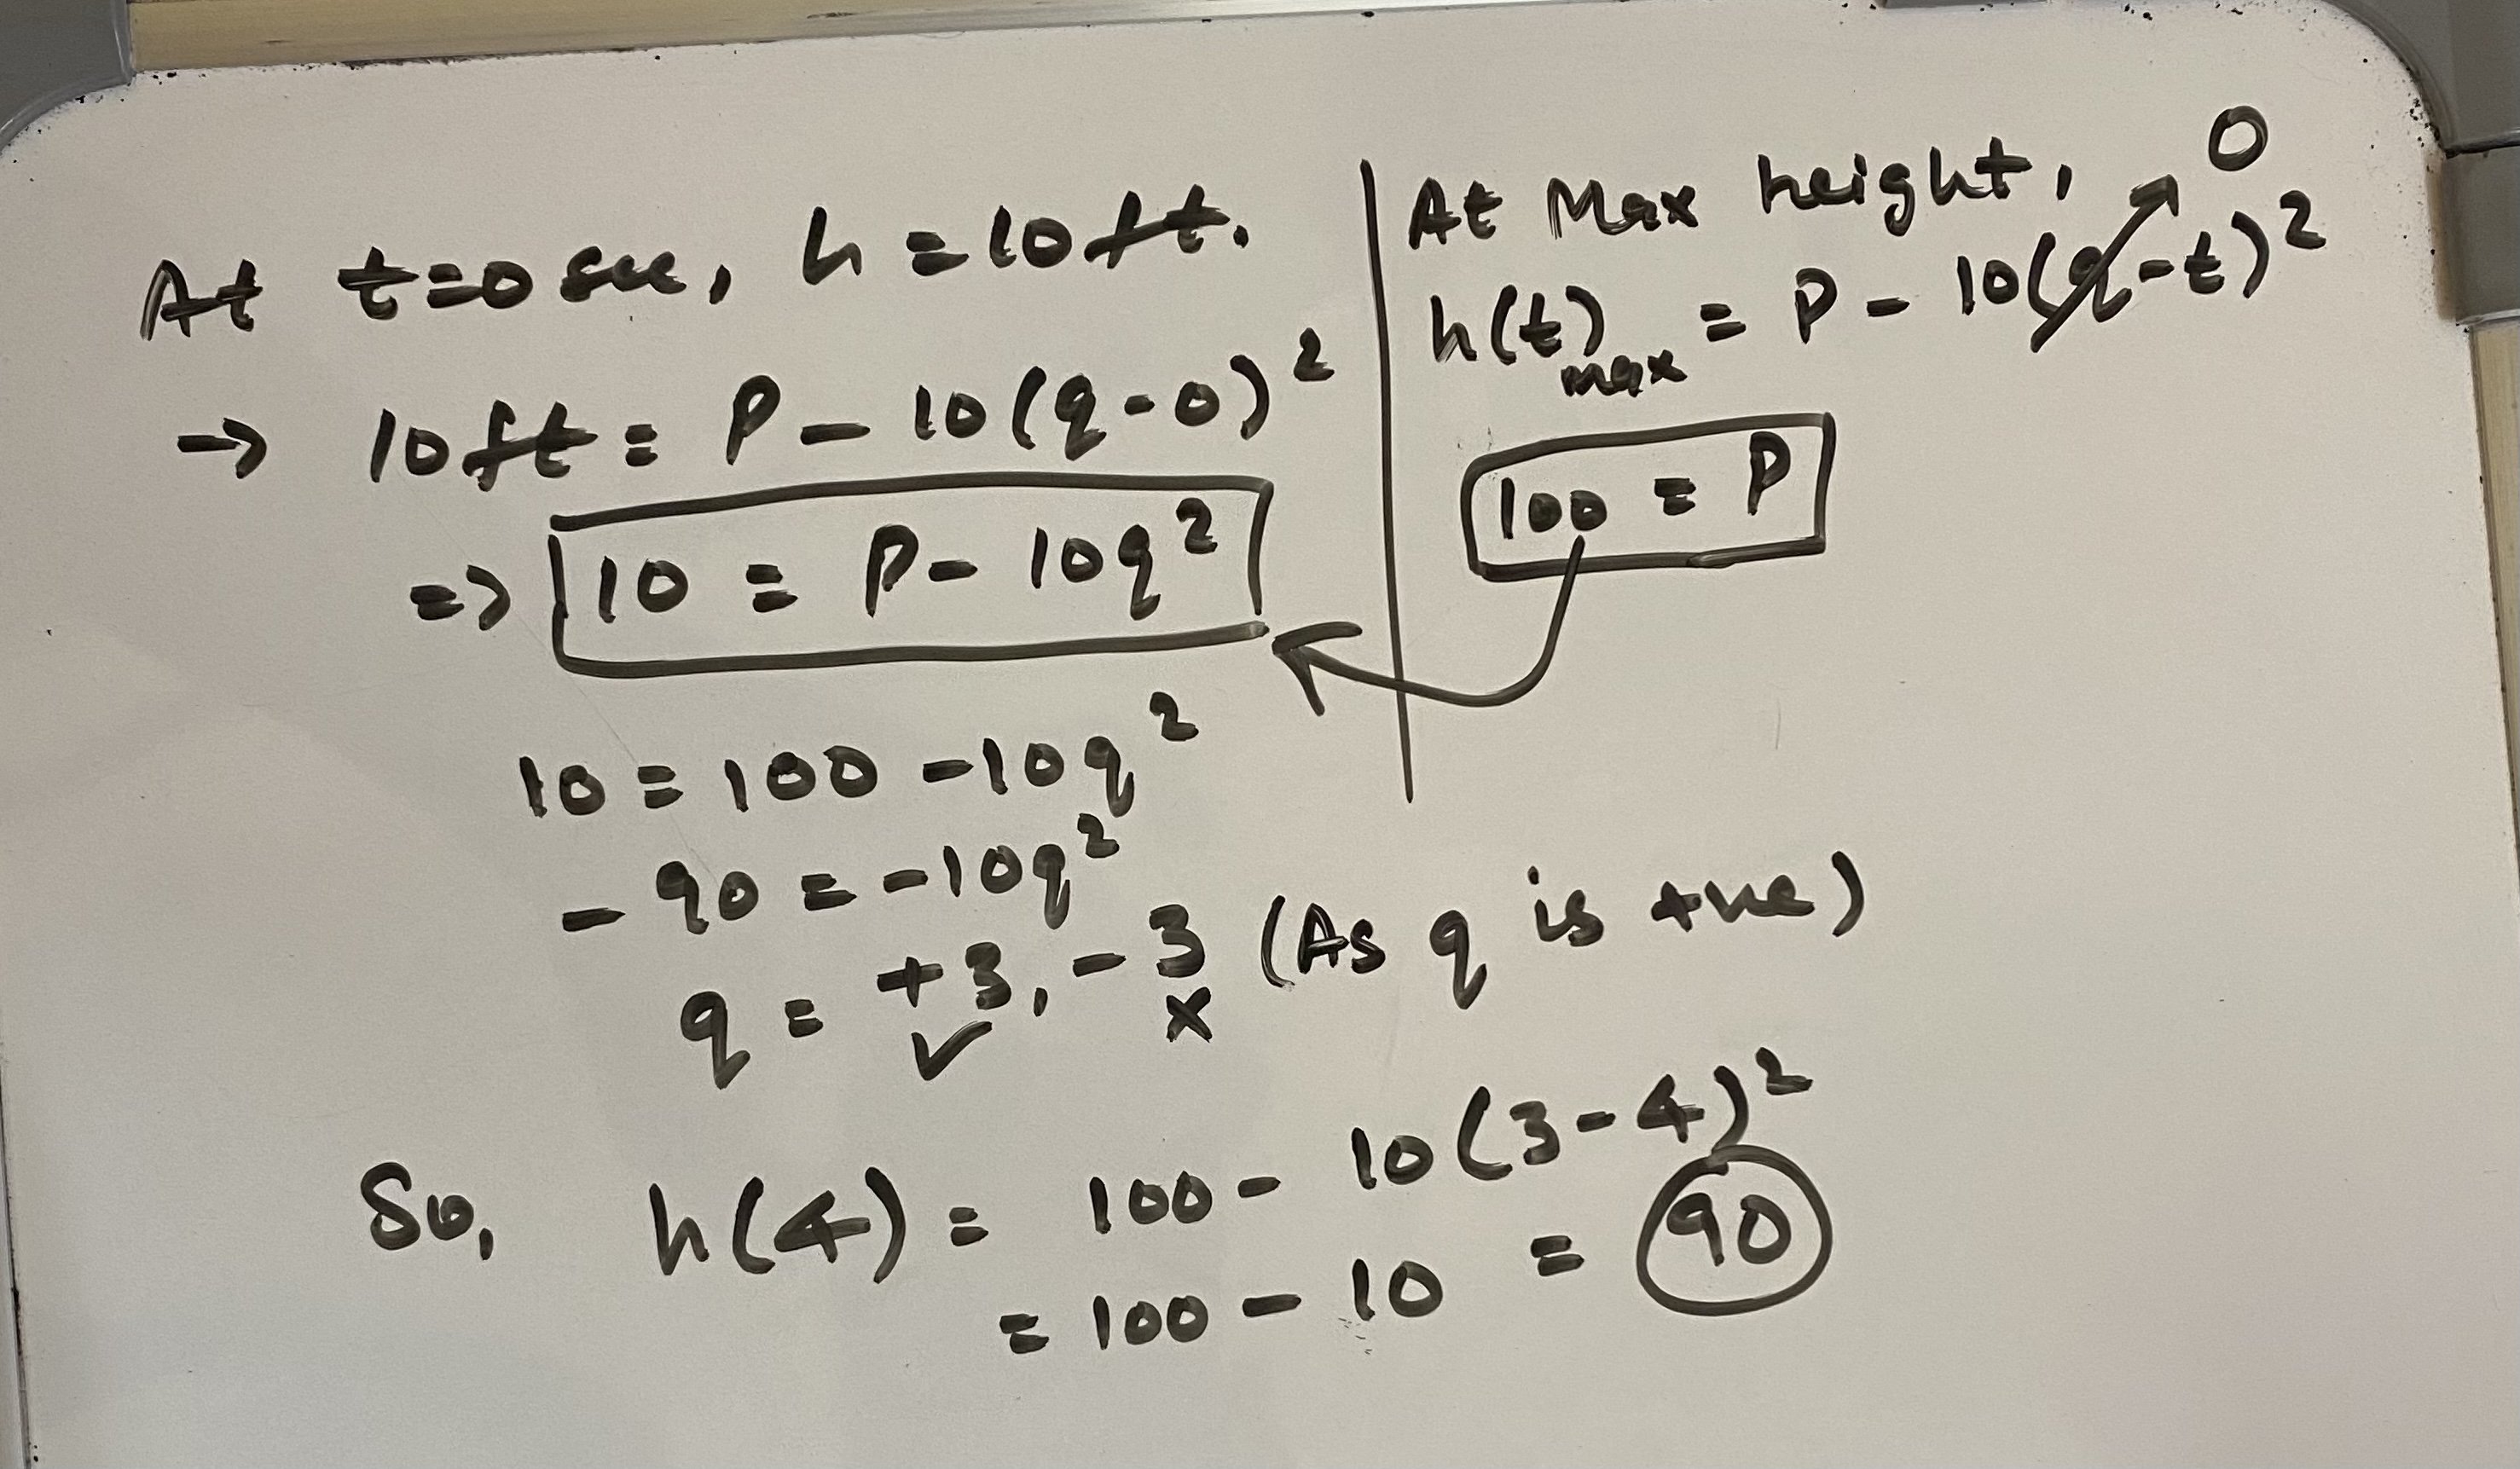 At t=0 sec, h = 10 ft.
→ 10 ft = P - 10(q-0)²
=> 10 = P - 10q²
At Max height, 0
h(t)max = P - 10(q-t)²
100 = P
10 = 100 - 10q²
- 90 = -10q²
q = +3, -3 (As q is +ve)
✓ x
So, h(4) = 100 - 10(3-4)²
= 100 - 10 = 90